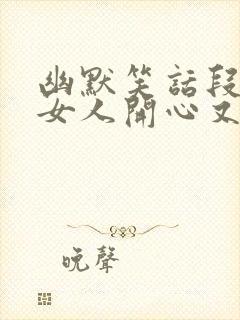 幽默笑話段
女人開心又
晚聲